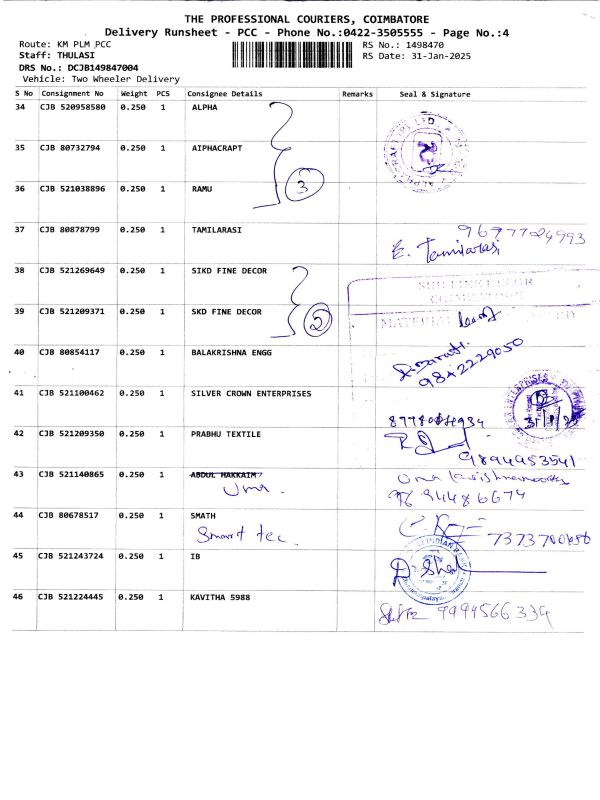 THE PROFESSIONAL COURIERS, COIMBATORE
Delivery Runsheet - PCC - Phone No.:0422-3505555 - Page No.:4
Route: KM PLM PCC RS No.: 1498470
Staff: THULASI RS Date: 31-Jan-2025
DRS No.: DCJB149847004
Vehicle: Two Wheeler Delivery
S No Consignment No Weight PCS Consignee Details Remarks Seal & Signature
34 CJB 520958580 0.250 1 ALPHA
35 CJB 80732794 0.250 1 AIPHACRAPT
36 CJB 521038896 0.250 1 RAMU
3
37 CJB 80878799 0.250 1 TAMILARASI
E. Tamilarasi
38 CJB 521269649 0.250 1 SIKD FINE DECOR
39 CJB 521209371 0.250 1 SKD FINE DECOR
2
MATERIAL
40 CJB 80854117 0.250 1 BALAKRISHNA ENGG
9842229050
41 CJB 521100462 0.250 1 SILVER CROWN ENTERPRISES
42 CJB 521209350 0.250 1 PRABHU TEXTILE
9894953541
43 CJB 521140865 0.250 1 ABDUL HAKKAIM
Uma
44 CJB 80678517 0.250 1 SMATH
Smart tec
45 CJB 521243724 0.250 1 IB
46 CJB 521224445 0.250 1 KAVITHA 5988